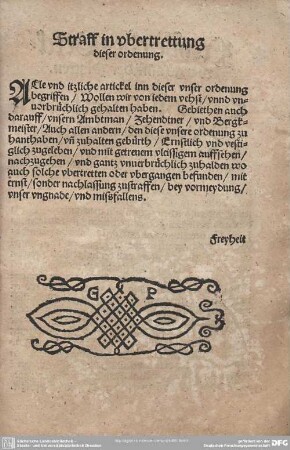 Straff in vbertrettung
dieser ordenung.
ALle vnd itzliche artickel inn dieser vnser ordenung
begriffen / Wollen wir von iedem vehst / vnnd vn-
uorbrüchlich gehalten haben. Gebiethen auch
darauff / vnsern Ambtman / Zehendtner / vnd Bergk-
meister / Auch allen andern / den diese vnsere ordenung zu
hanthaben / vñ zuhalten gebürth / Ernstlich vnd vestig-
lich zugeleben / vnd mit getrewem vleissigem auffsehen /
nachzugehen / vnd gantz vnuerbrüchlich zuhalden wo
auch solche vbertretten oder vbergangen befunden / mit
ernst / sonder nachlassung zustraffen / bey vormeydung /
vnser vngnade / vnd misfallens.
Freyheit
G P
DFG